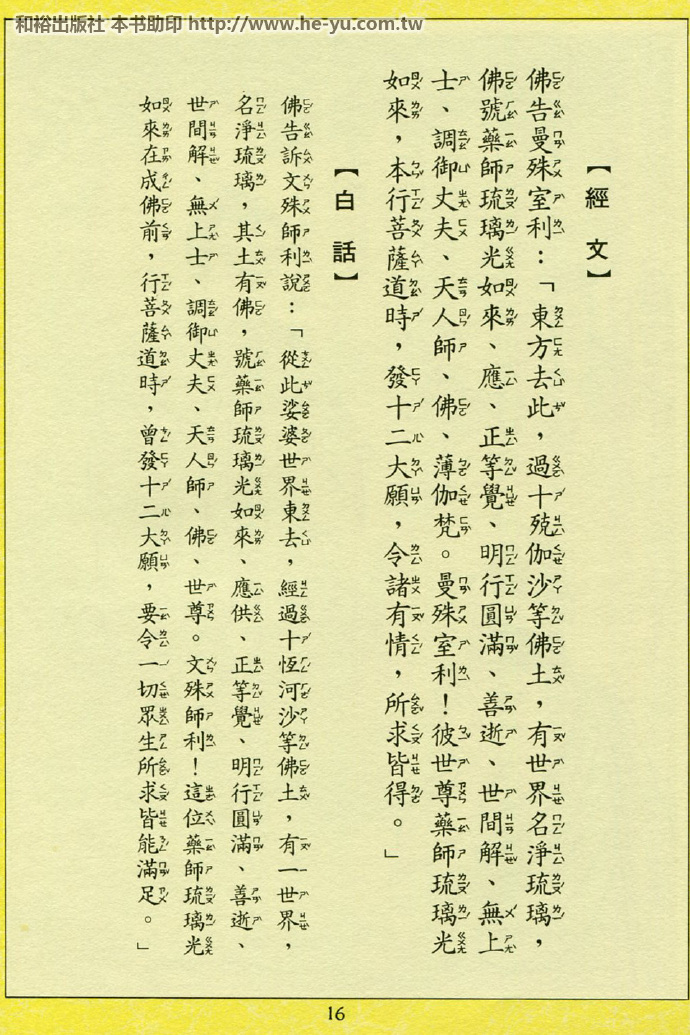 和裕出版社 本书助印 http://www.he-yu.com.tw
【經文】
佛告曼殊室利：「東方去此，過十殑伽沙等佛土，有世界名淨琉璃，
佛號藥師琉璃光如來、應、正等覺、明行圓滿、善逝、世間解、無上
士、調御丈夫、天人師、佛、薄伽梵。曼殊室利！彼世尊藥師琉璃光
如來，本行菩薩道時，發十二大願，令諸有情，所求皆得。」
【白話】
佛告訴文殊師利說：「從此娑婆世界東去，經過十恆河沙等佛土，有一世界，
名淨琉璃，其土有佛，號藥師琉璃光如來、應供、正等覺、明行圓滿、善逝、
世間解、無上士、調御丈夫、天人師、佛、世尊。文殊師利！這位藥師琉璃光
如來在成佛前，行菩薩道時，曾發十二大願，要令一切眾生所求皆能滿足。」
16